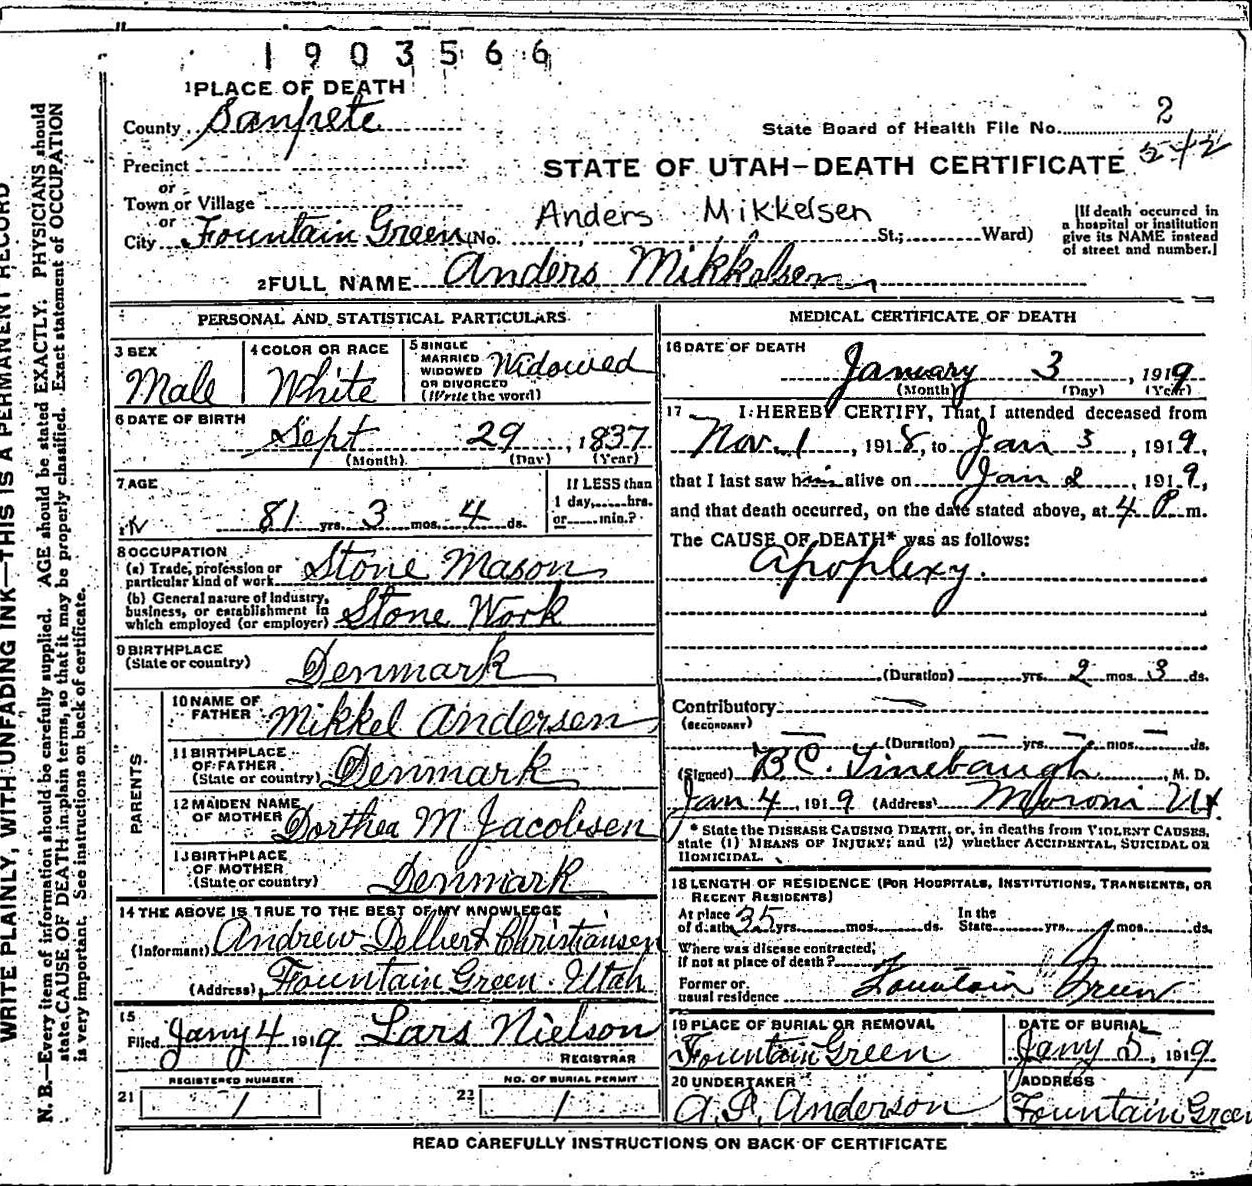 1903566
1 PLACE OF DEATH
County Sanpete
State Board of Health File No. 2
542
Precinct
STATE OF UTAH—DEATH CERTIFICATE
or
Town or Village
or
Anders Mikkelsen
City Fountain Green (No. St.; Ward)
[If death occurred in
a hospital or institution
give its NAME instead
of street and number.]
2 FULL NAME Anders Mikkelsen
PERSONAL AND STATISTICAL PARTICULARS
3 SEX
Male
4 COLOR OR RACE
White
5 SINGLE
MARRIED
WIDOWED
OR DIVORCED
(Write the word)
Widowed
6 DATE OF BIRTH
Sept 29, 1837
(Month) (Day) (Year)
7 AGE
81 yrs. 3 mos. 4 ds.
If LESS than
1 day, hrs.
or min.?
8 OCCUPATION
(a) Trade, profession or
particular kind of work Stone Mason
(b) General nature of industry,
business, or establishment in
which employed (or employer) Stone Work
9 BIRTHPLACE
(State or country) Denmark
PARENTS
10 NAME OF
FATHER Mikkel Andersen
11 BIRTHPLACE
OF FATHER
(State or country) Denmark
12 MAIDEN NAME
OF MOTHER Dorthea M Jacobsen
13 BIRTHPLACE
OF MOTHER
(State or country) Denmark
14 THE ABOVE IS TRUE TO THE BEST OF MY KNOWLEDGE
(Informant) Andrew Delbert Christiansen
(Address) Fountain Green Utah
15
Filed Jany 4 1919 Lars Nielson
REGISTRAR
REGISTERED NUMBER
21 1
NO. OF BURIAL PERMIT
22 1
MEDICAL CERTIFICATE OF DEATH
16 DATE OF DEATH
January 3, 1919
(Month) (Day) (Year)
17 I HEREBY CERTIFY, That I attended deceased from
Nov. 1, 1918, to Jan 3, 1919,
that I last saw him alive on Jan 2, 1919,
and that death occurred, on the date stated above, at 4 P m.
The CAUSE OF DEATH* was as follows:
Apoplexy.
(Duration) yrs. 2 mos. 3 ds.
Contributory —
(SECONDARY)
(Duration) — yrs. — mos. — ds.
(Signed) B C. Linebaugh, M. D.
Jan 4, 1919 (Address) Moroni Ut
* State the DISEASE CAUSING DEATH, or, in deaths from VIOLENT CAUSES,
state (1) MEANS OF INJURY; and (2) whether ACCIDENTAL, SUICIDAL OR
HOMICIDAL.
18 LENGTH OF RESIDENCE (FOR HOSPITALS, INSTITUTIONS, TRANSIENTS, OR
RECENT RESIDENTS)
At place
of death 35 yrs. mos. ds.
In the
State yrs. mos. ds.
Where was disease contracted,
if not at place of death?
Former or
usual residence Fountain Green
19 PLACE OF BURIAL OR REMOVAL
Fountain Green
DATE OF BURIAL
Jany 5, 1919
20 UNDERTAKER
A. P. Anderson
ADDRESS
Fountain Green
READ CAREFULLY INSTRUCTIONS ON BACK OF CERTIFICATE
WRITE PLAINLY, WITH UNFADING INK—THIS IS A PERMANENT RECORD
N. B.—Every item of information should be carefully supplied. AGE should be stated EXACTLY. PHYSICIANS should
state CAUSE OF DEATH in plain terms, so that it may be properly classified. Exact statement of OCCUPATION
is very important. See instructions on back of certificate.